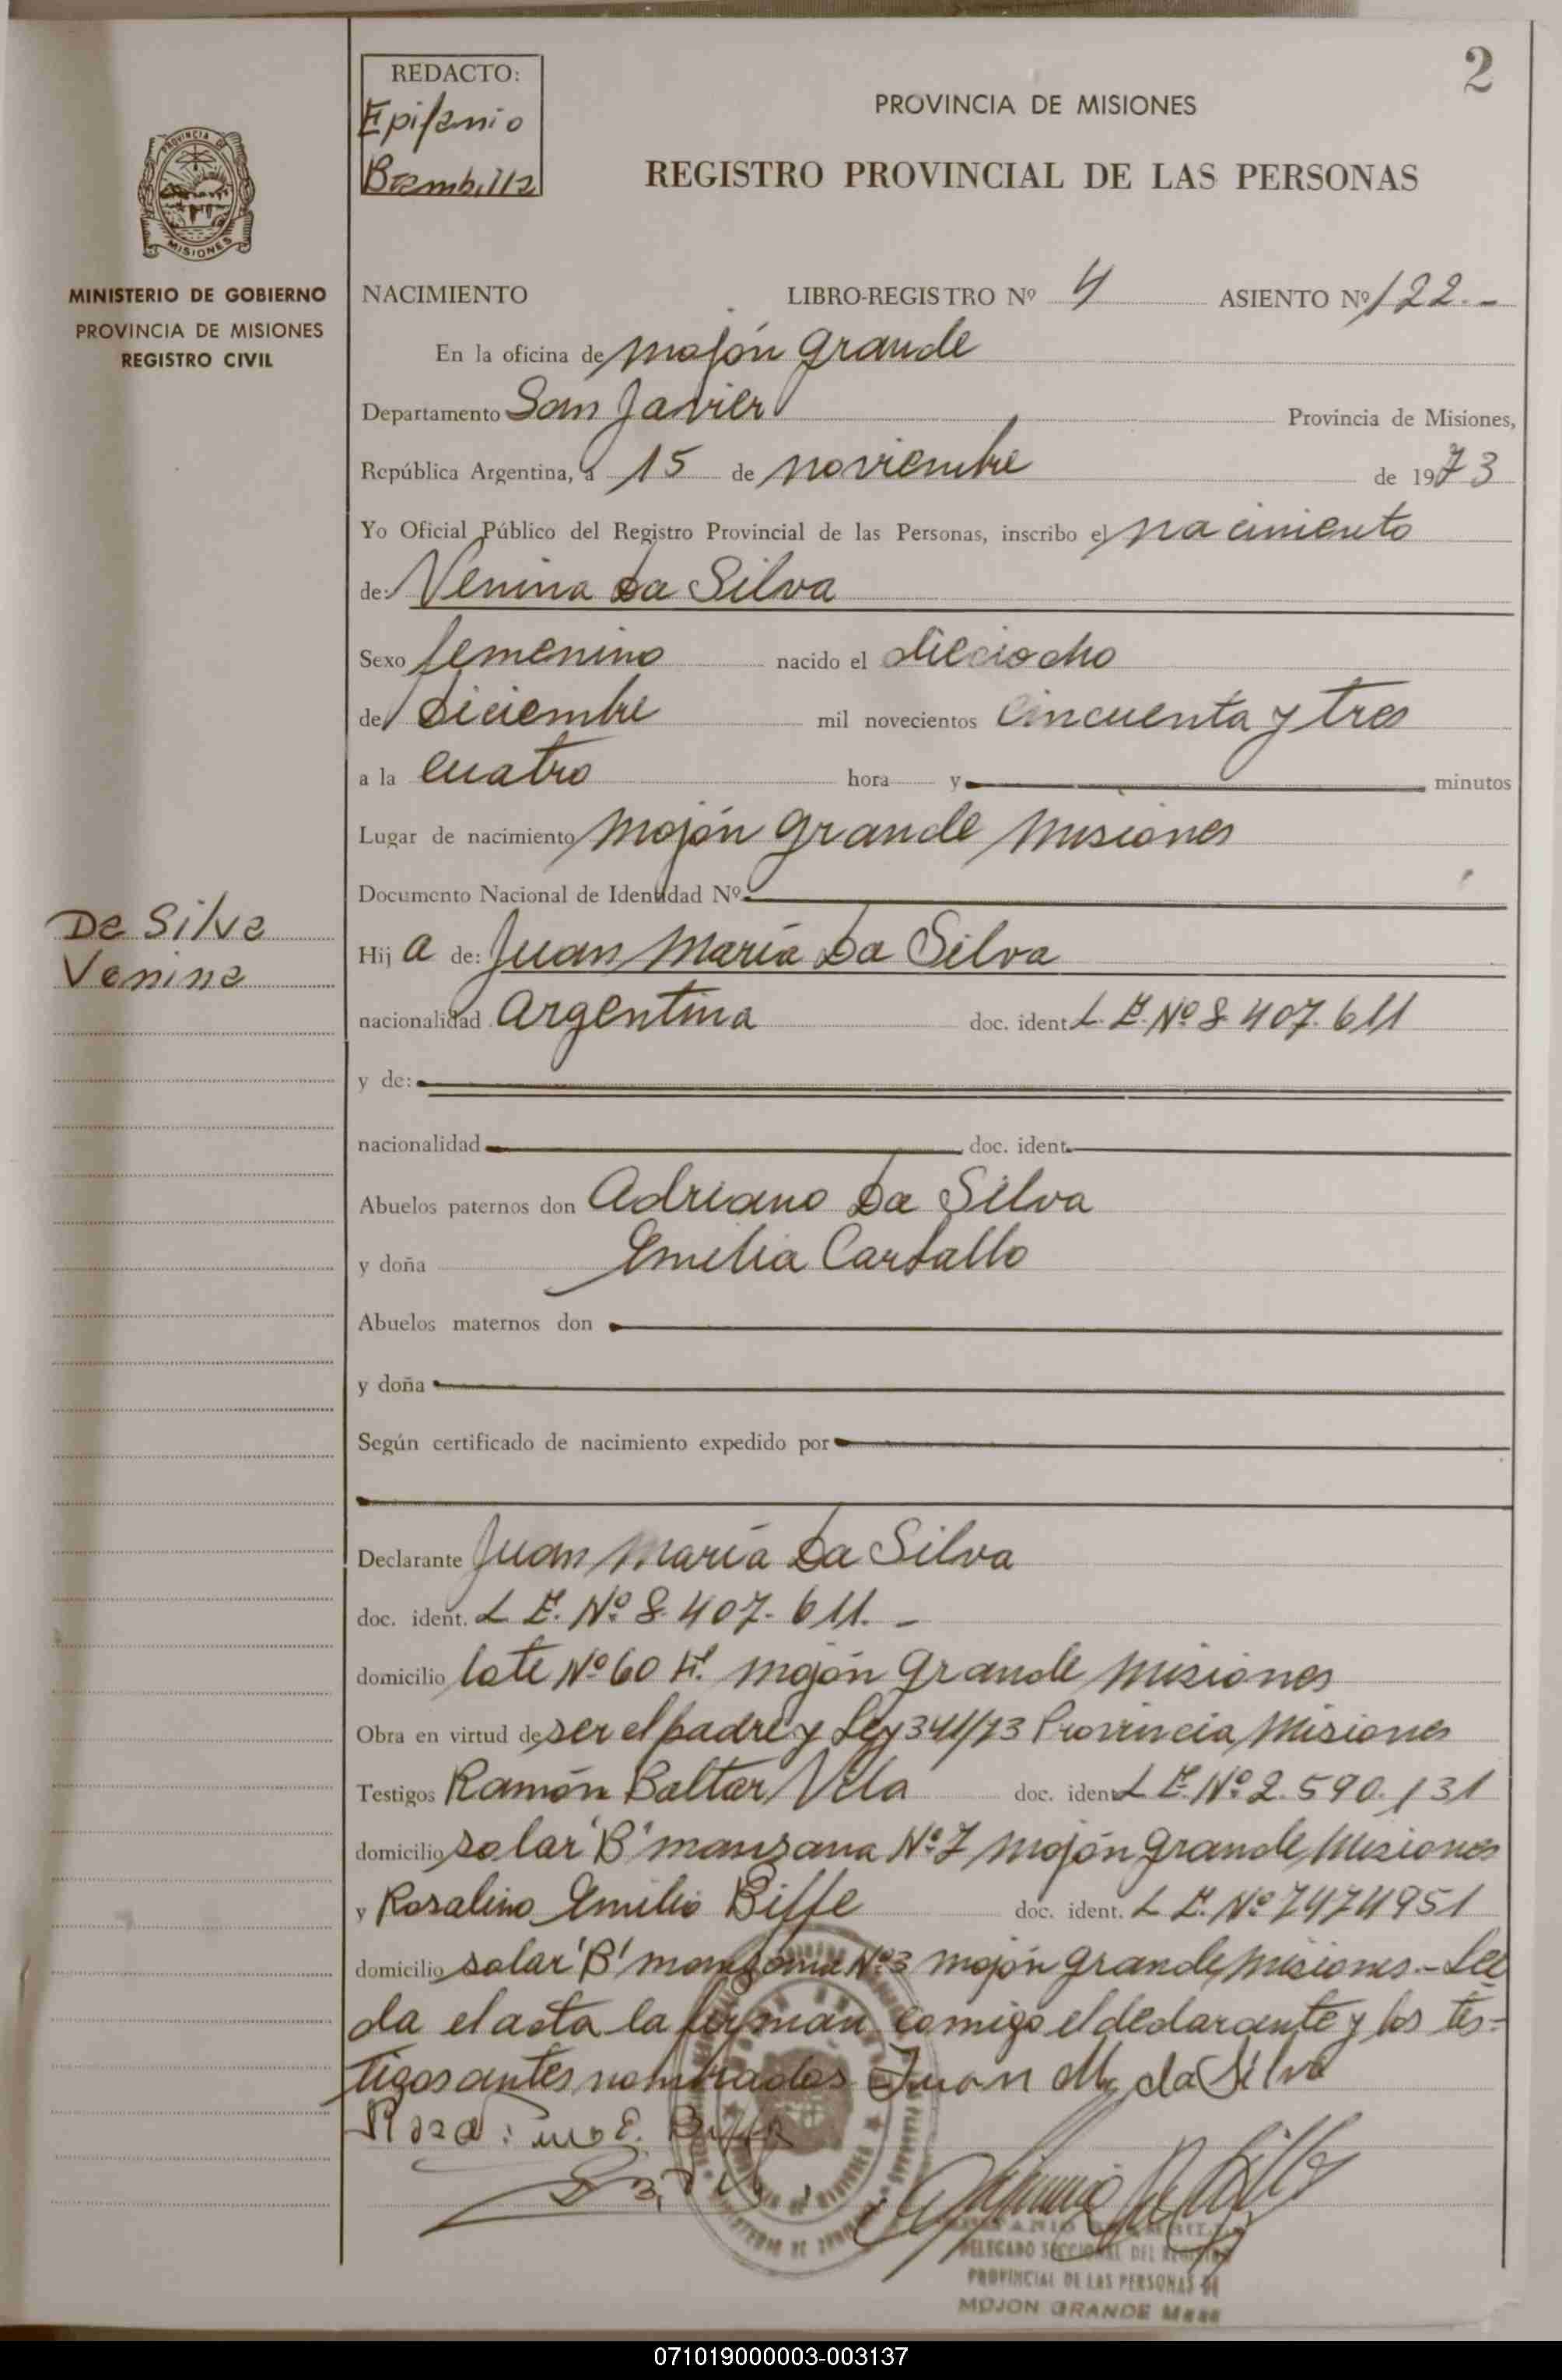 2
REDACTO:
Epifanio
Brambilla
PROVINCIA DE MISIONES
REGISTRO PROVINCIAL DE LAS PERSONAS
PROVINCIA DE
MISIONES
MINISTERIO DE GOBIERNO
PROVINCIA DE MISIONES
REGISTRO CIVIL
NACIMIENTO LIBRO-REGISTRO Nº 4 ASIENTO Nº 122.-
En la oficina de Mojón Grande
Departamento San Javier Provincia de Misiones,
República Argentina, a 15 de noviembre de 1973
Yo Oficial Público del Registro Provincial de las Personas, inscribo el nacimiento
de: Venina Da Silva
Sexo femenino nacido el dieciocho
de diciembre mil novecientos cincuenta y tres
a la cuatro hora y minutos
Lugar de nacimiento Mojón Grande Misiones
Documento Nacional de Identidad Nº
Da Silva
Venina
Hij a de: Juan María Da Silva
nacionalidad Argentina doc. ident. L.E. Nº 8.407.611
y de:
nacionalidad doc. ident.
Abuelos paternos don Adriano Da Silva
y doña Emilia Carballo
Abuelos maternos don
y doña
Según certificado de nacimiento expedido por
Declarante Juan María Da Silva
doc. ident. L E. Nº 8.407.611.-
domicilio lote Nº 60 Mojón Grande Misiones
Obra en virtud de ser el padre y Ley 341/73 Provincia Misiones
Testigos Ramón Baltar Vila doc. ident. L E. Nº 2.590.131
domicilio solar 'B' manzana Nº 7 Mojón Grande Misiones
y Rosalino Emilio Biffe doc. ident. L E. Nº 7474951
domicilio solar 'B' manzana Nº 3 Mojón Grande Misiones.- Leí
da el acta la firman comigo el declarante y los tes-
tigos antes nombrados Juan M. da Silva
DELEGADO SECCIONAL DEL REGISTRO
PROVINCIAL DE LAS PERSONAS DE
MOJON GRANDE Mnes
071019000003-003137